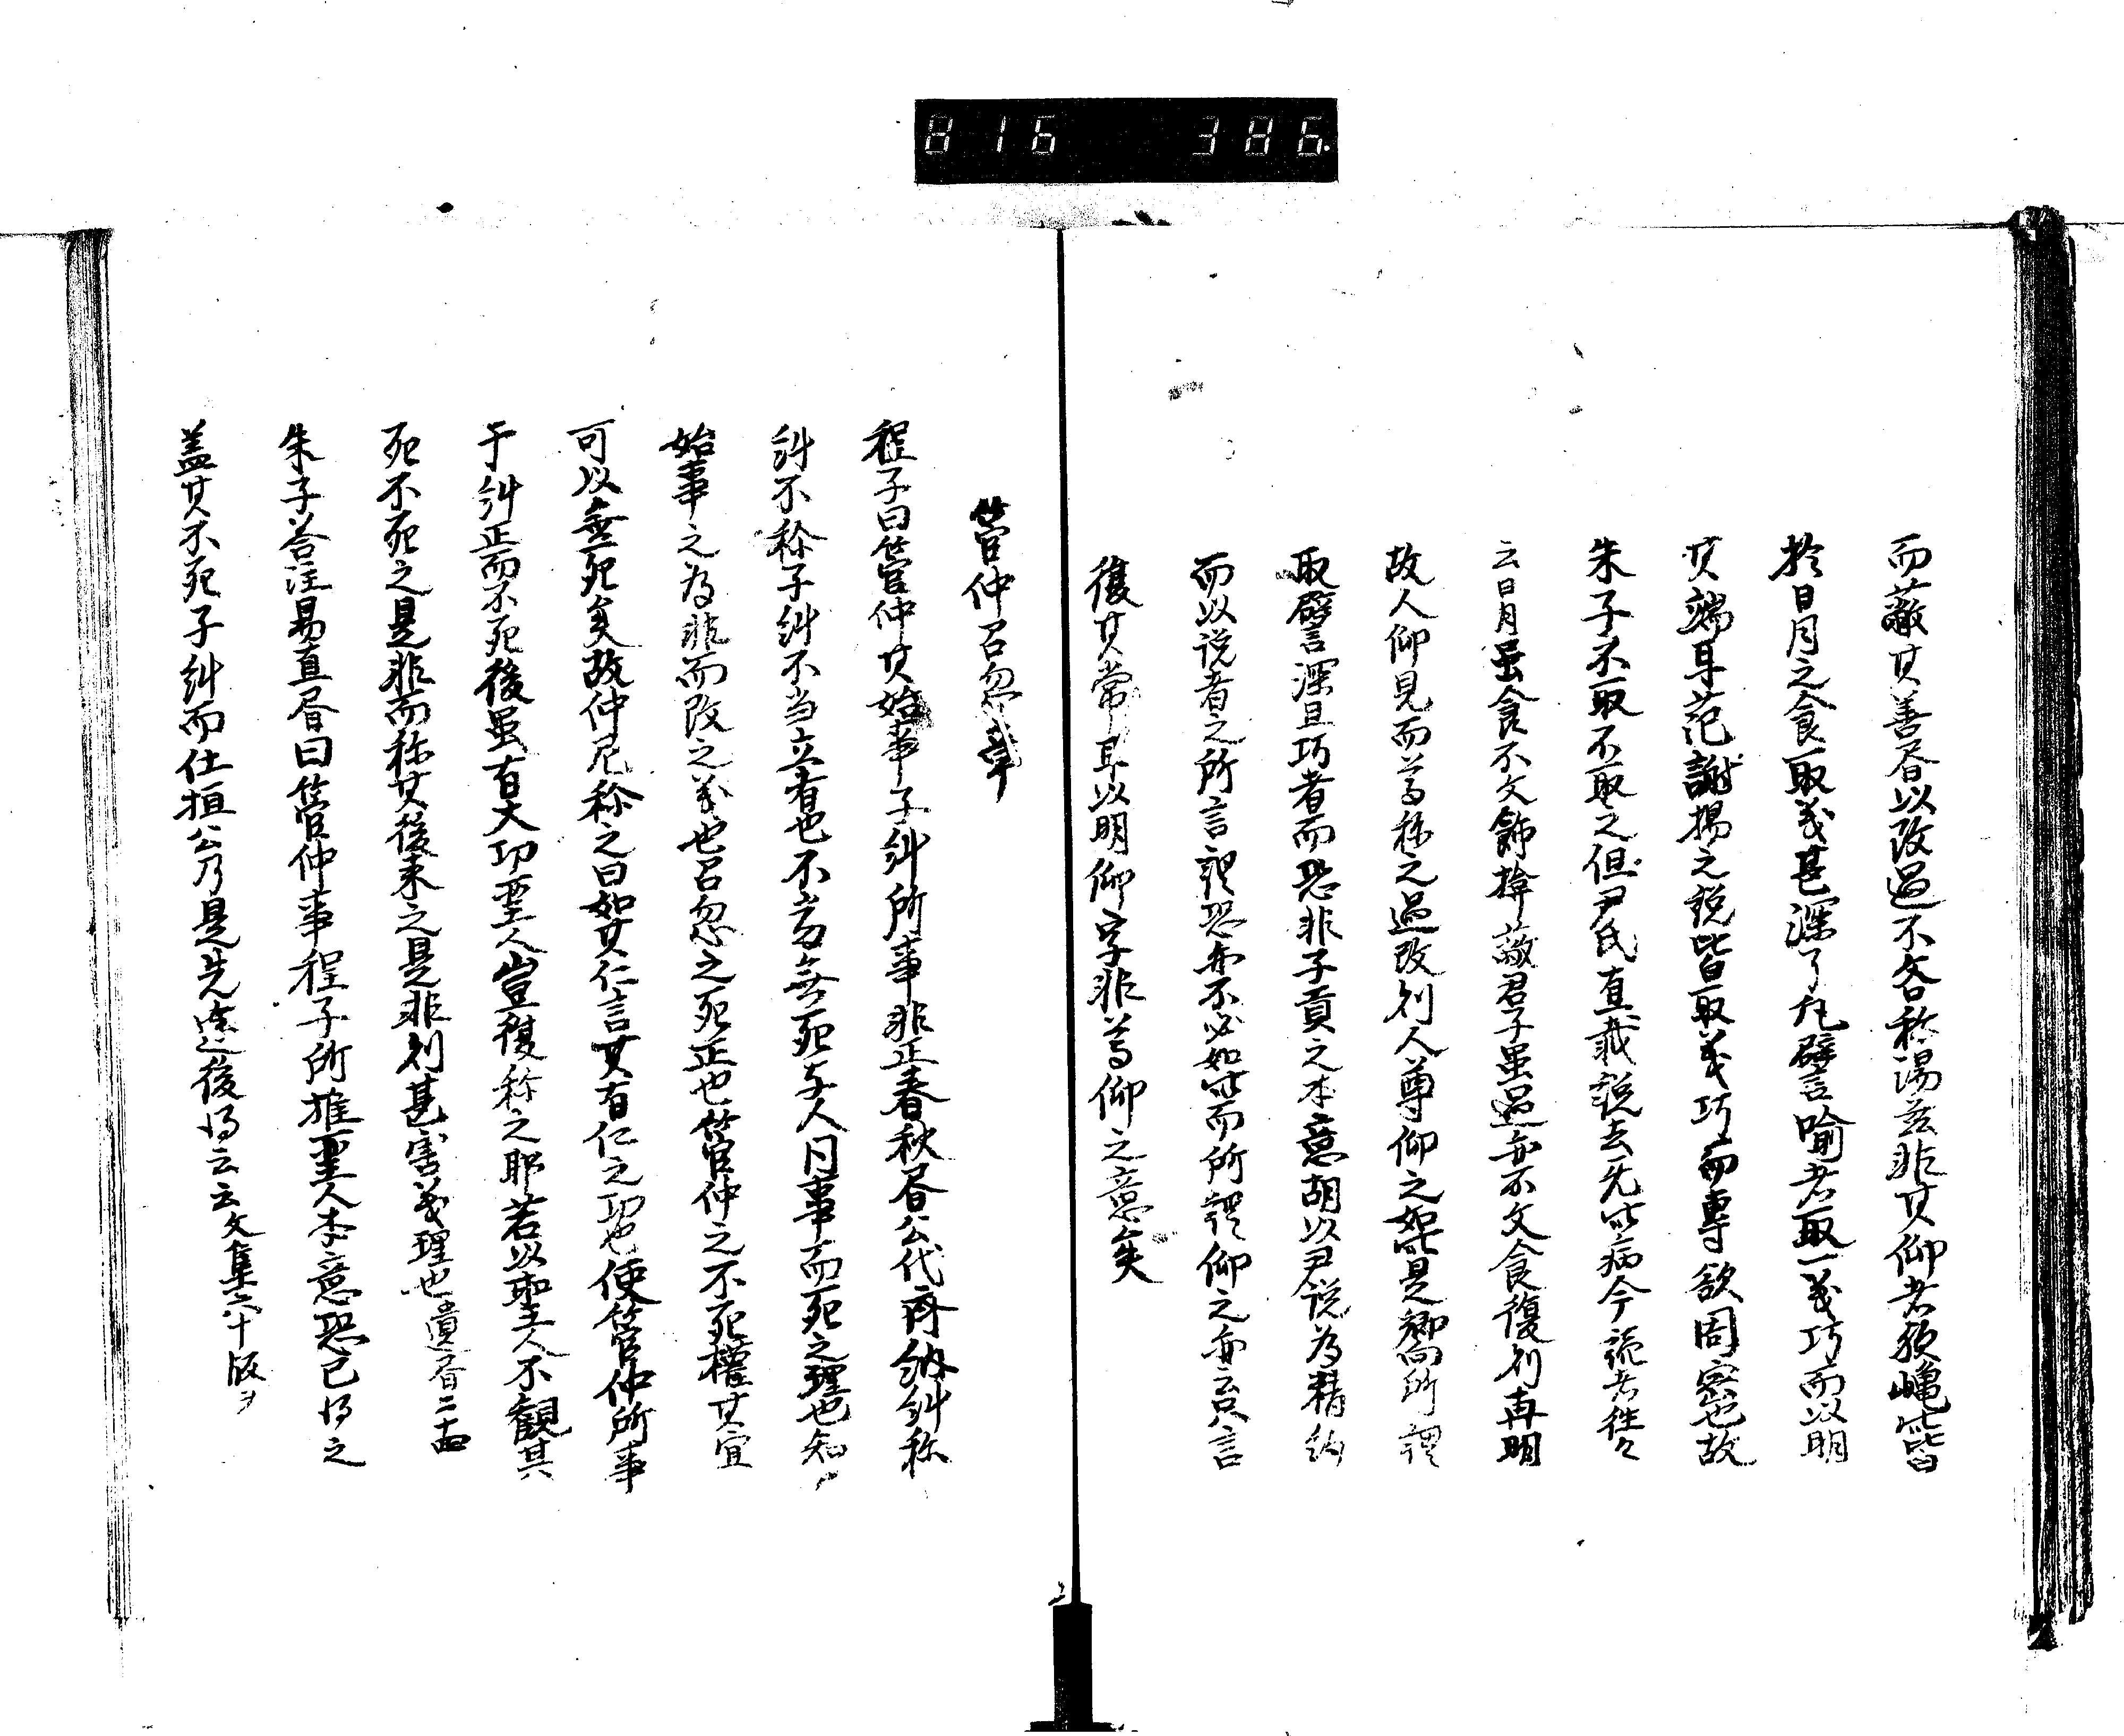 816 386.
而蔽其善書以改過不吝称湯茲非其仰者須
於日月之食取義甚深了凡譬喩者取一義巧而以明
其端耳范謝楊之説皆取義巧而專欲周密也故
朱子不取不取之但尹氏直截説去先此病今読者往々
云日月虽食不文飾揜蔽君子虽過亦不文食復則再明
故人仰見而尊称之過改則人尊仰之如此是鄉所謂
取譬言深且巧者而恐非子貢之本意胡以尹説為精約
而以説者之所言謂恐亦不必如此而所謂仰之亦言
復其常耳以明仰字非尊仰之意矣
管仲召忽章
程子曰管仲其始事子糾所事非正春秋書公伐斉納糾称
糾不称子糾不当立者也不当立無死与人同事而死之理也知
始事之為非而改之義也召忽之死正也管仲之不死權其宜
可以無死矣故仲尼称之曰如其仁言其有仁之功也使管仲所事
于糾正而不死後虽有大功聖人豈復称之耶若以聖人不觀其
死不死之是非而称其後来之是非則甚害義理也遺書二十四
朱子荅汪易直書曰管仲事程子所推聖人本意恐已得之
盖其不死子糾而仕桓公乃是先迷後得云云文集六十版ヲ